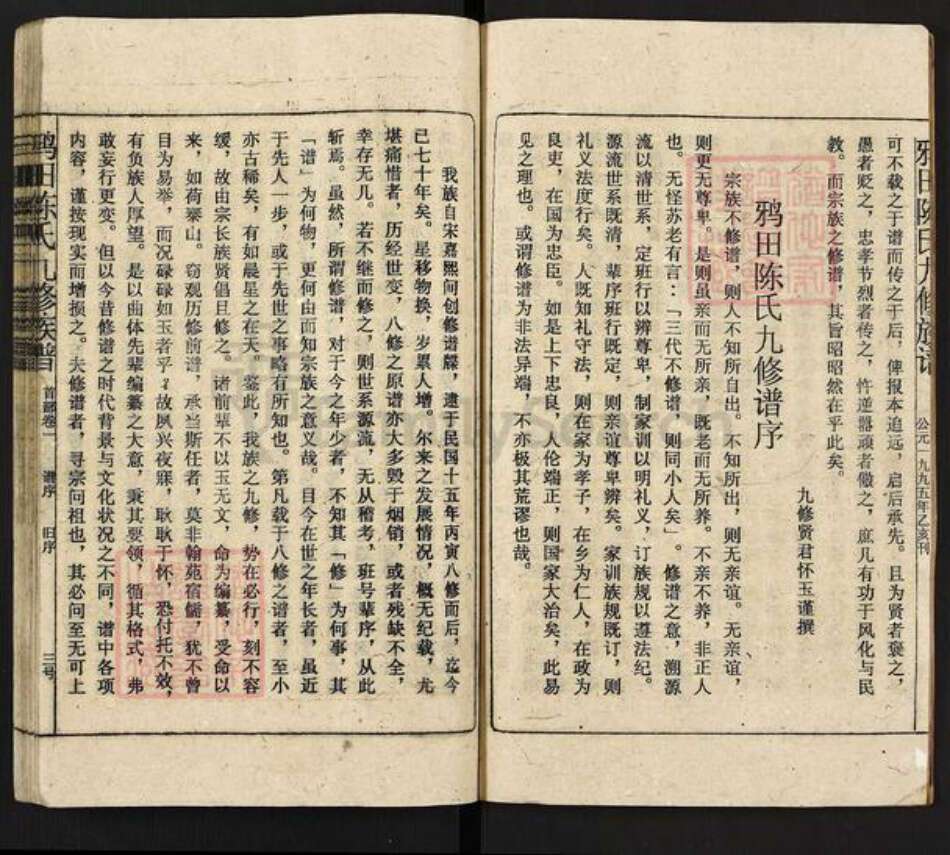 鸦田陈氏九修族谱
公元一九九五年乙亥刊
可不载之于谱而传之于后，俾报本追远，启后承先。且为贤者褒之，
愚者贬之，忠孝节烈者传之，忤逆嚚顽者儆之，庶几有功于风化与民
教。而宗族之修谱，其旨昭昭然在乎此矣。
九修贤君怀玉谨撰
鸦田陈氏九修谱序
宗族不修谱，则人不知所自出。不知所出，则无亲谊。无亲谊，
则更无尊卑。是则虽亲而无所亲，既老而无所养。不亲不养，非正人
也。无怪苏老有言：「三代不修谱，则同小人矣」。修谱之意，溯源
流以清世系，定班行以辨尊卑，制家训以明礼义，订族规以遵法纪。
源流世系既清，辈序班行既定，则亲谊尊卑辨矣。家训族规既订，则
礼义法度行矣。人既知礼守法，则在家为孝子，在乡为仁人，在政为
良吏，在国为忠臣。如是上下忠良，人伦端正，则国家大治矣，此易
见之理也。或谓修谱为非法异端，不亦极其荒谬也哉。
我族自宋嘉熙间创修谱牒，遗于民国十五年丙寅八修而后，迄今
已七十年矣。星移物换，岁累人增。尔来之发展情况，概无纪载，尤
堪痛惜者，历经世变，八修之原谱亦大多毁于烟销，或者残缺不全，
幸存无几。若不继而修之，则世系源流，无从稽考，班号辈序，从此
斩焉。虽然，所谓修谱，对于今之年少者，不知其「修」为何事，其
「谱」为何物，更何由而知宗族之意义哉。目今在世之年长者，虽近
于先人一步，或于先世之事略有所知也。第凡载于八修之谱者，至小
亦古稀矣，有如晨星之在天。鉴此，我族之九修，势在必行，刻不容
缓，故由宗长族贤倡且修之。诸前辈不以玉无文，命为编纂，受命以
来，如荷泰山。窃观历修前谱，承当斯任者，莫非翰苑宿儒，犹不曾
目为易举，而况碌碌如玉者乎？故夙兴夜寐，耿耿于怀，恐付托不效，
有负族人厚望。是以曲体先辈编纂之大意，秉其要领，循其格式，弗
敢妄行更变。但以今昔修谱之时代背景与文化状况之不同，谱中各项
内容，谨按现实而增损之。夫修谱者，寻宗问祖也，其必问至无可上
鸦田陈氏九修族谱
首部卷一
谱序
旧序
三号